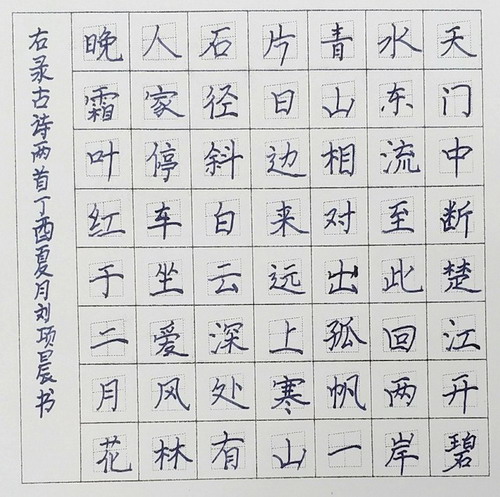 天门中断楚江开碧
水东流至此回两岸
青山相对出孤帆一
片日边来远上寒山
石径斜白云深处有
人家停车坐爱风林
晚霜叶红于二月花
右录古诗两首丁酉夏月刘项晨书